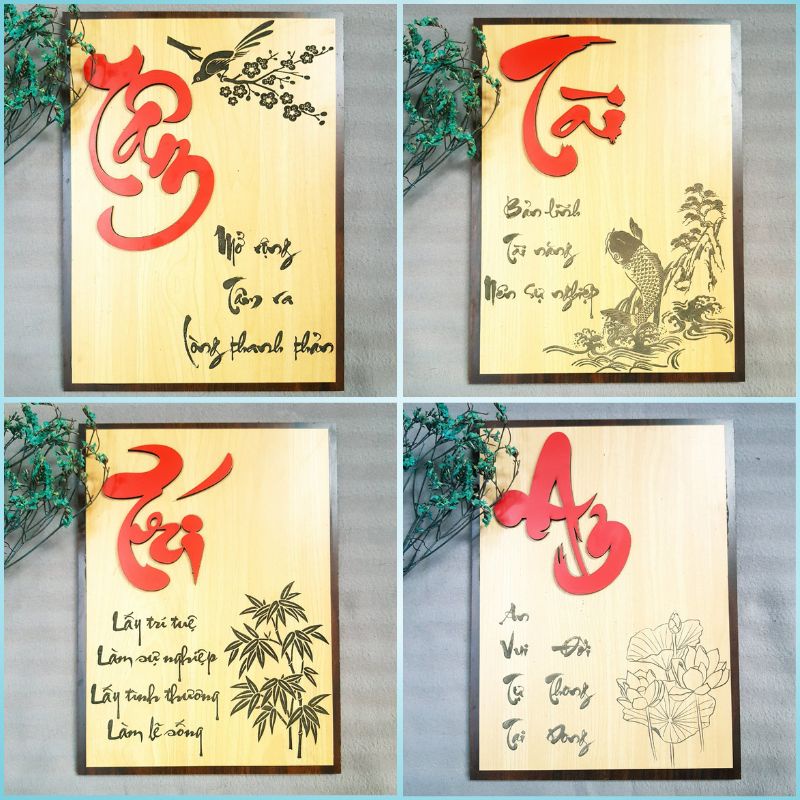 Tâm
Mở rộng
Tâm ra
Lòng thanh thản
Tài
Bản lĩnh
Tài năng
Nên sự nghiệp
Trí
Lấy trí tuệ
Làm sự nghiệp
Lấy tình thương
Làm lẽ sống
An
An
Vui Đời
Tự Thong
Tại Dong